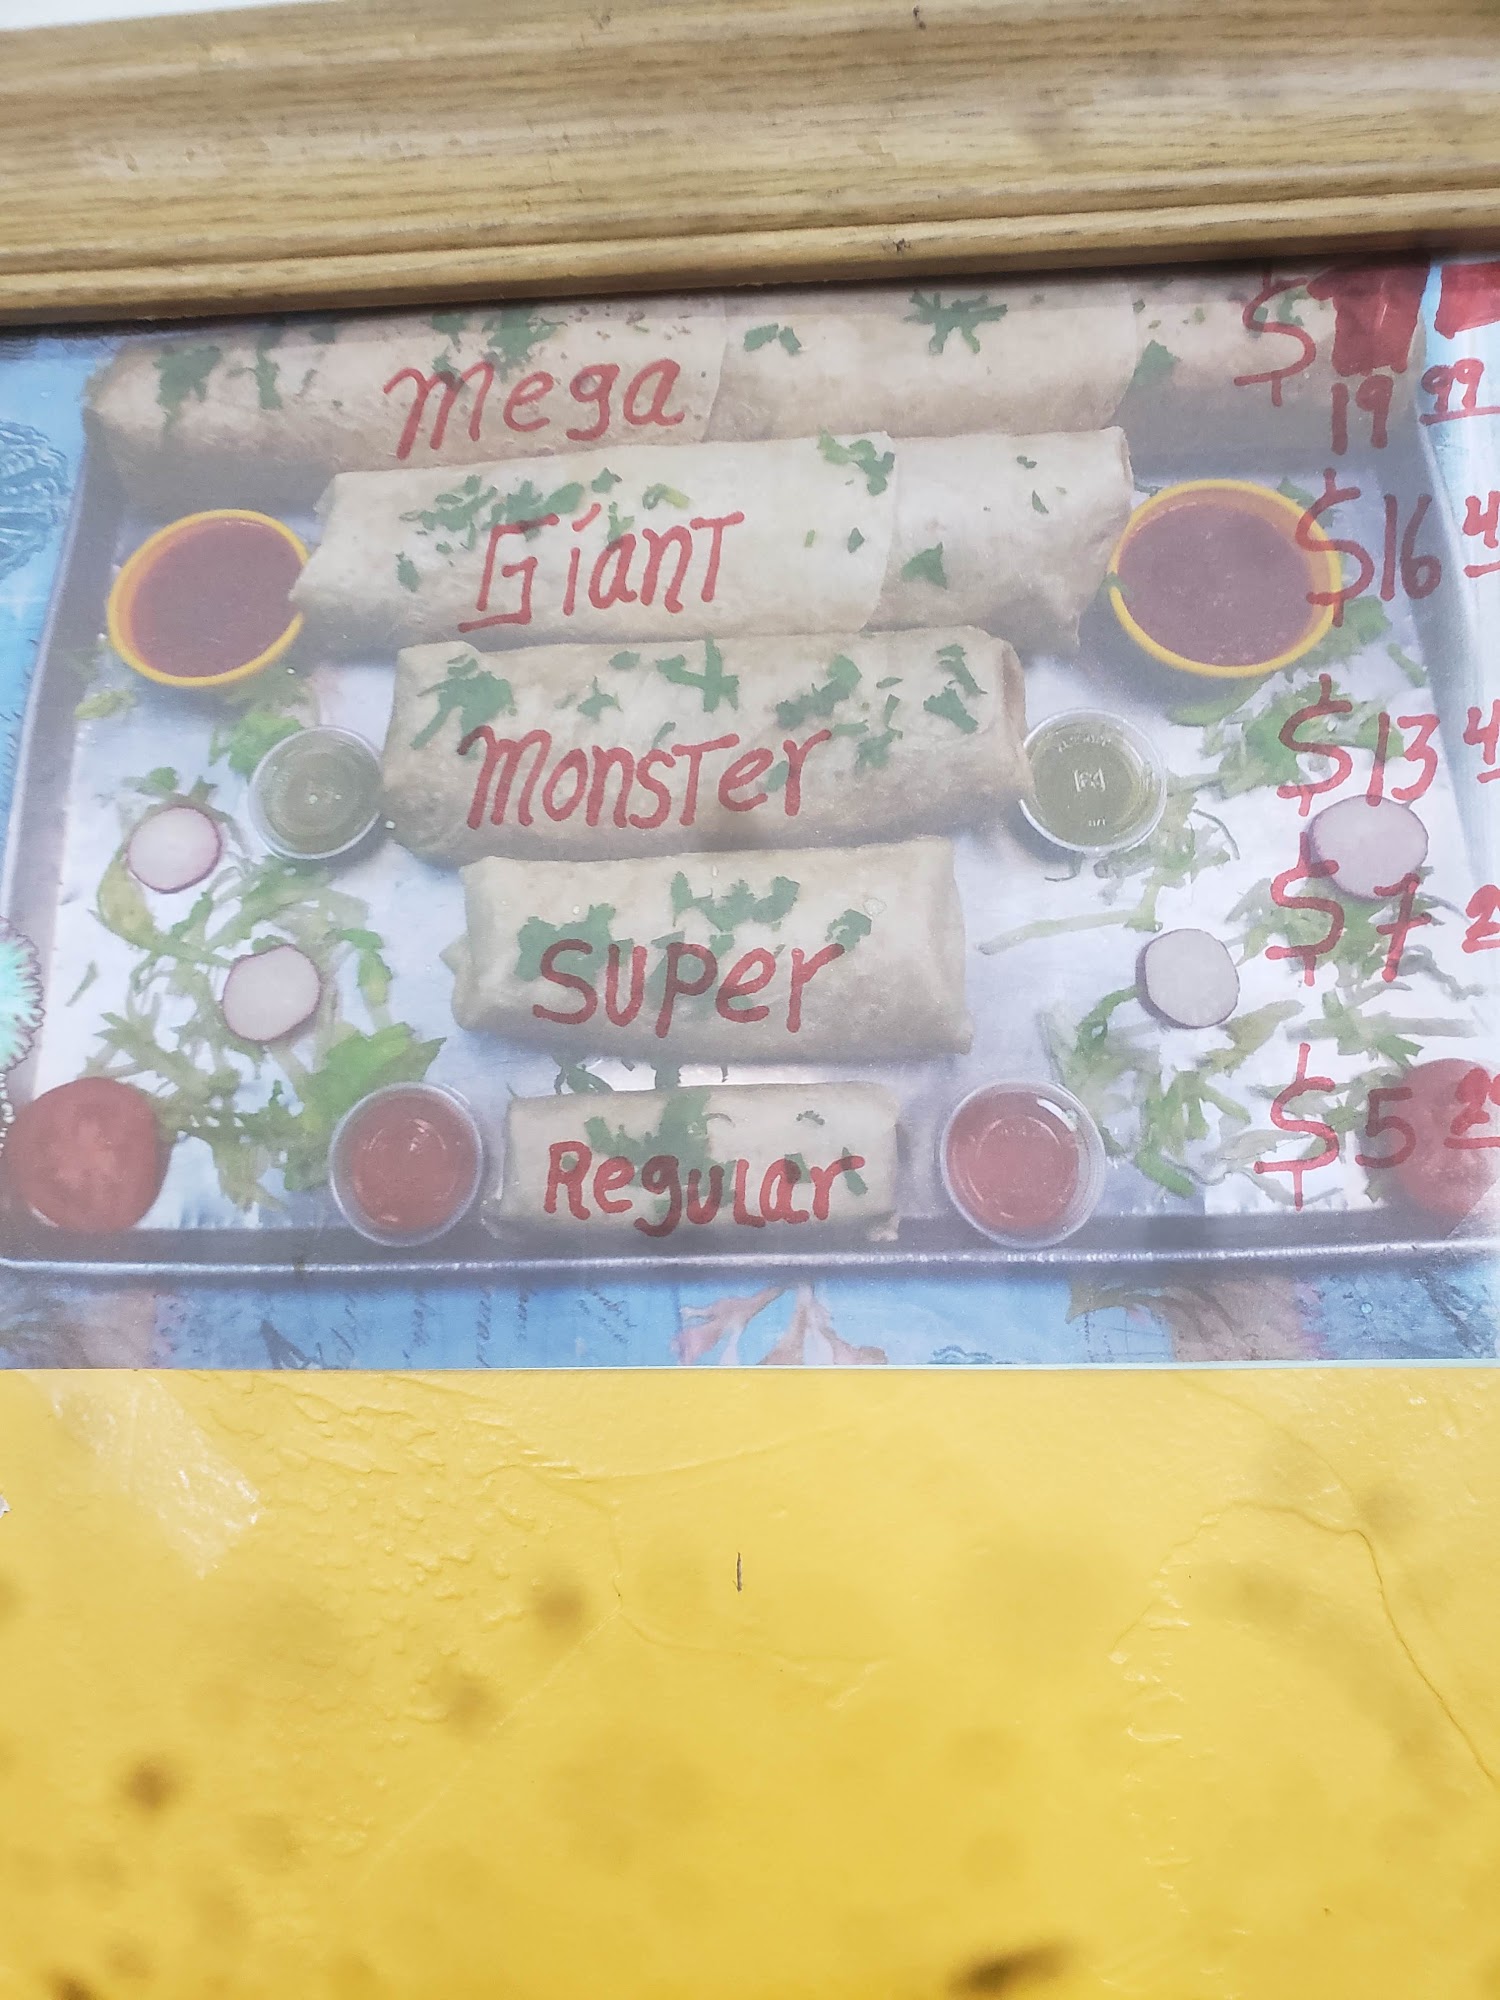 Mega $ 19 99
Giant $16 4
Monster $13 4
Super $7 2
Regular $5 2